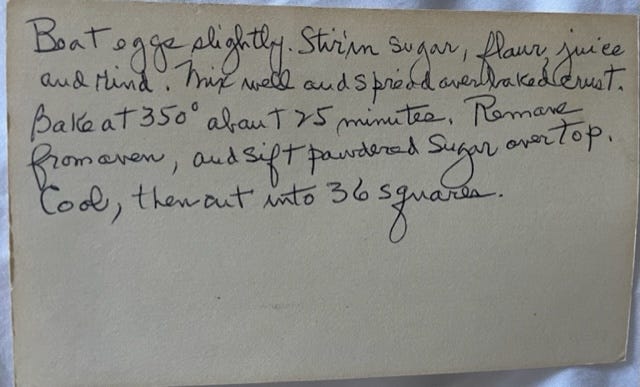 Beat eggs slightly. Stir in sugar, flour, juice
and rind. Mix well and spread over baked crust.
Bake at 350° about 25 minutes. Remove
from oven, and sift powdered sugar over top.
Cool, then cut into 36 squares.